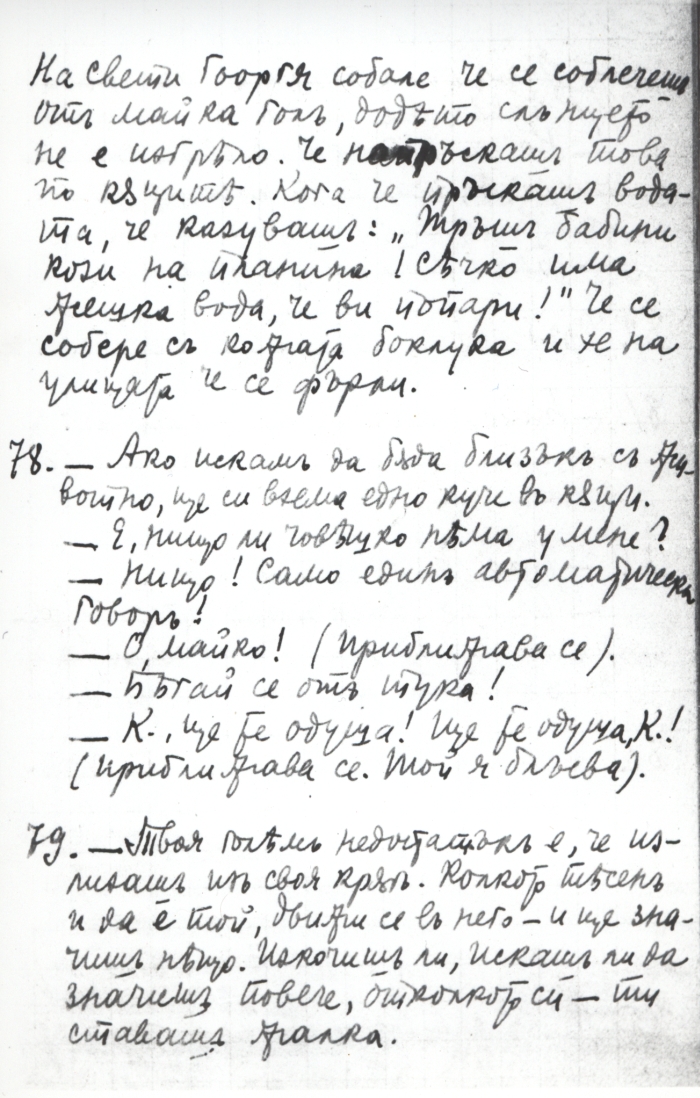 На Свети Гооргя собале че се соблечешъ
отъ майка голъ, додѣто слънцето
не е изгрѣло. Че напръскашъ това
по кѫщитѣ. Кога че пръскашъ вода-
та, че казувашъ: „Тръшъ бабини
кози на планина! Сѣчко има
жешка вода, че ви попари!" Че се
собере съ кожата боклука и на
улицата че се фърли.
78. — Ако искамъ да бѫда близъкъ съ жи-
вотно, ще си взема едно куче въ кѫщи.
— Е, нищо ли човѣшко нѣма у мене?
— Нищо! Само единъ автоматически
говоръ!
— О, майко! (Приближава се).
— Бѣгай се отъ тука!
— К., ще те одуша! Ще те одуша, К.!
(Приближава се. Той я блъсва).
79. — Твоя голѣмъ недостатъкъ е, че из-
лизашъ изъ своя крѫгъ. Колкото тѣсенъ
и да е той, движи се въ него — и ще зна-
чишъ нѣщо. Изкочишъ ли, искашъ ли да
значишъ повече, отколкото си — ти
ставашъ жалка.